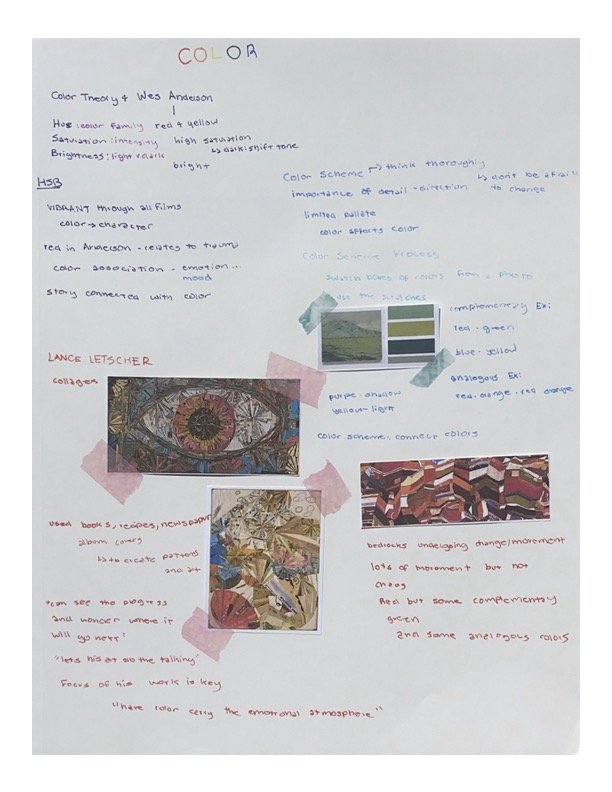 COLOR
Color Theory & Wes Anderson
Hue: color family red & yellow
Saturation: intensity high saturation
Brightness: light & dark ↳ dark: shift tone
bright
HSB
VIBRANT through all films
color → character
red in Anderson - relates to trauma
color association - emotion...
mood
story connected with color
Color Scheme → think thoroughly
importance of detail - direction ↳ don't be afraid
to change
limited pallate
color affects color
Color Scheme Process
swatch boxes of colors from a photo
use the swatches
complementary Ex:
red - green
blue - yellow
analogous Ex:
red - orange - red orange
purple - shallow
yellow - light
color scheme: connect colors
LANCE LETSCHER
collages
used books, recipes, newspaper
album covers
↳ to create patterns
and art
"can see the progress
and wonder where it
will go next"
"lets his art do the talking"
Focus of his work is key
"have color carry the emotional atmosphere"
bedrocks undergoing change/movement
lots of movement but not
chaos
Red but some complementary
green
and some analogous colors